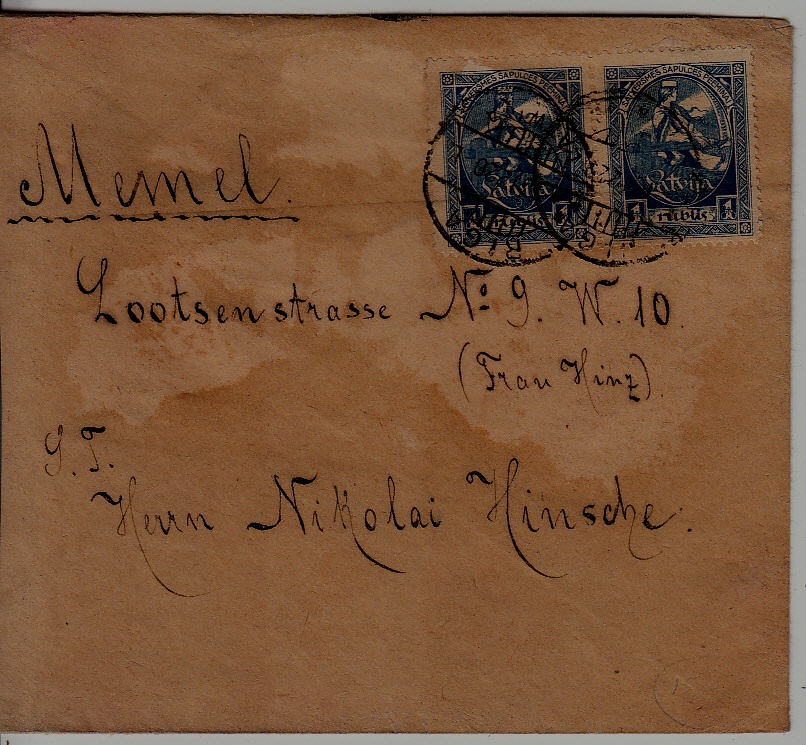 SATVERSMES SAPULCES PEEMIŅAI
Latvija
1 rublis 1
SATVERSMES SAPULCES PEEMIŅAI
Latvija
1 rublis 1
RIGA
Memel.
Lootsenstrasse No. 9. W. 10.
(Frau Hinz).
S. T.
Herrn Nikolai Hinsche.